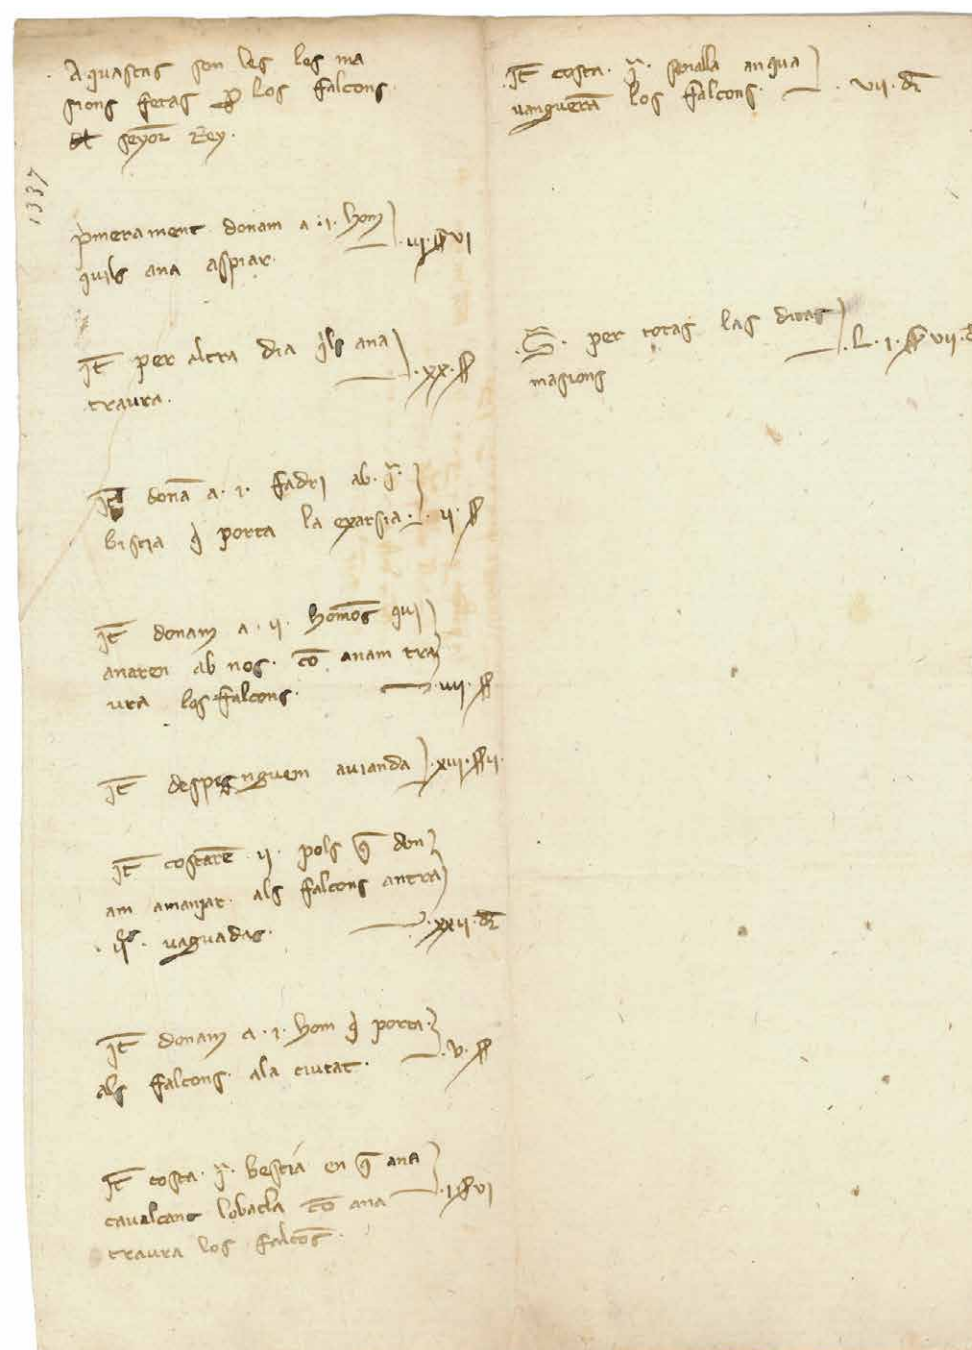 Aquastas son les les ma
sions fetas p los falcons
del seyor Rey.
1337
primerament donam a .i. hom
quils ana aspiar. .iii. ss vi
Jt per altra dia qls ana
traura. .xx. ss
Jt dona a .i. fadri ab .ia.
bistia q porta la exarsia. .ii. ss
Jt donam a .ii. homes qui
anaren ab nos. co anam tra
ura los falcons. .iiii. ss
Jt despesnguem avianda .xvi. ss ii.
Jt costare .ii. pols q don
am amanjar als falcons antra
.iies. vaguadas. .xxii. dr
Jt donam a .i. hom q porta
als falcons ala ciutat. .v. ss
Jt costa .ia. bestia en q ana
cavalcant lobacla co ana .i. ss vi
traura los falcos.
Jt costa .ia. senalla an qua
vanguera los falcons. .vii. dr
.S. per totas las ditas
masions .L.i. ss vii. d